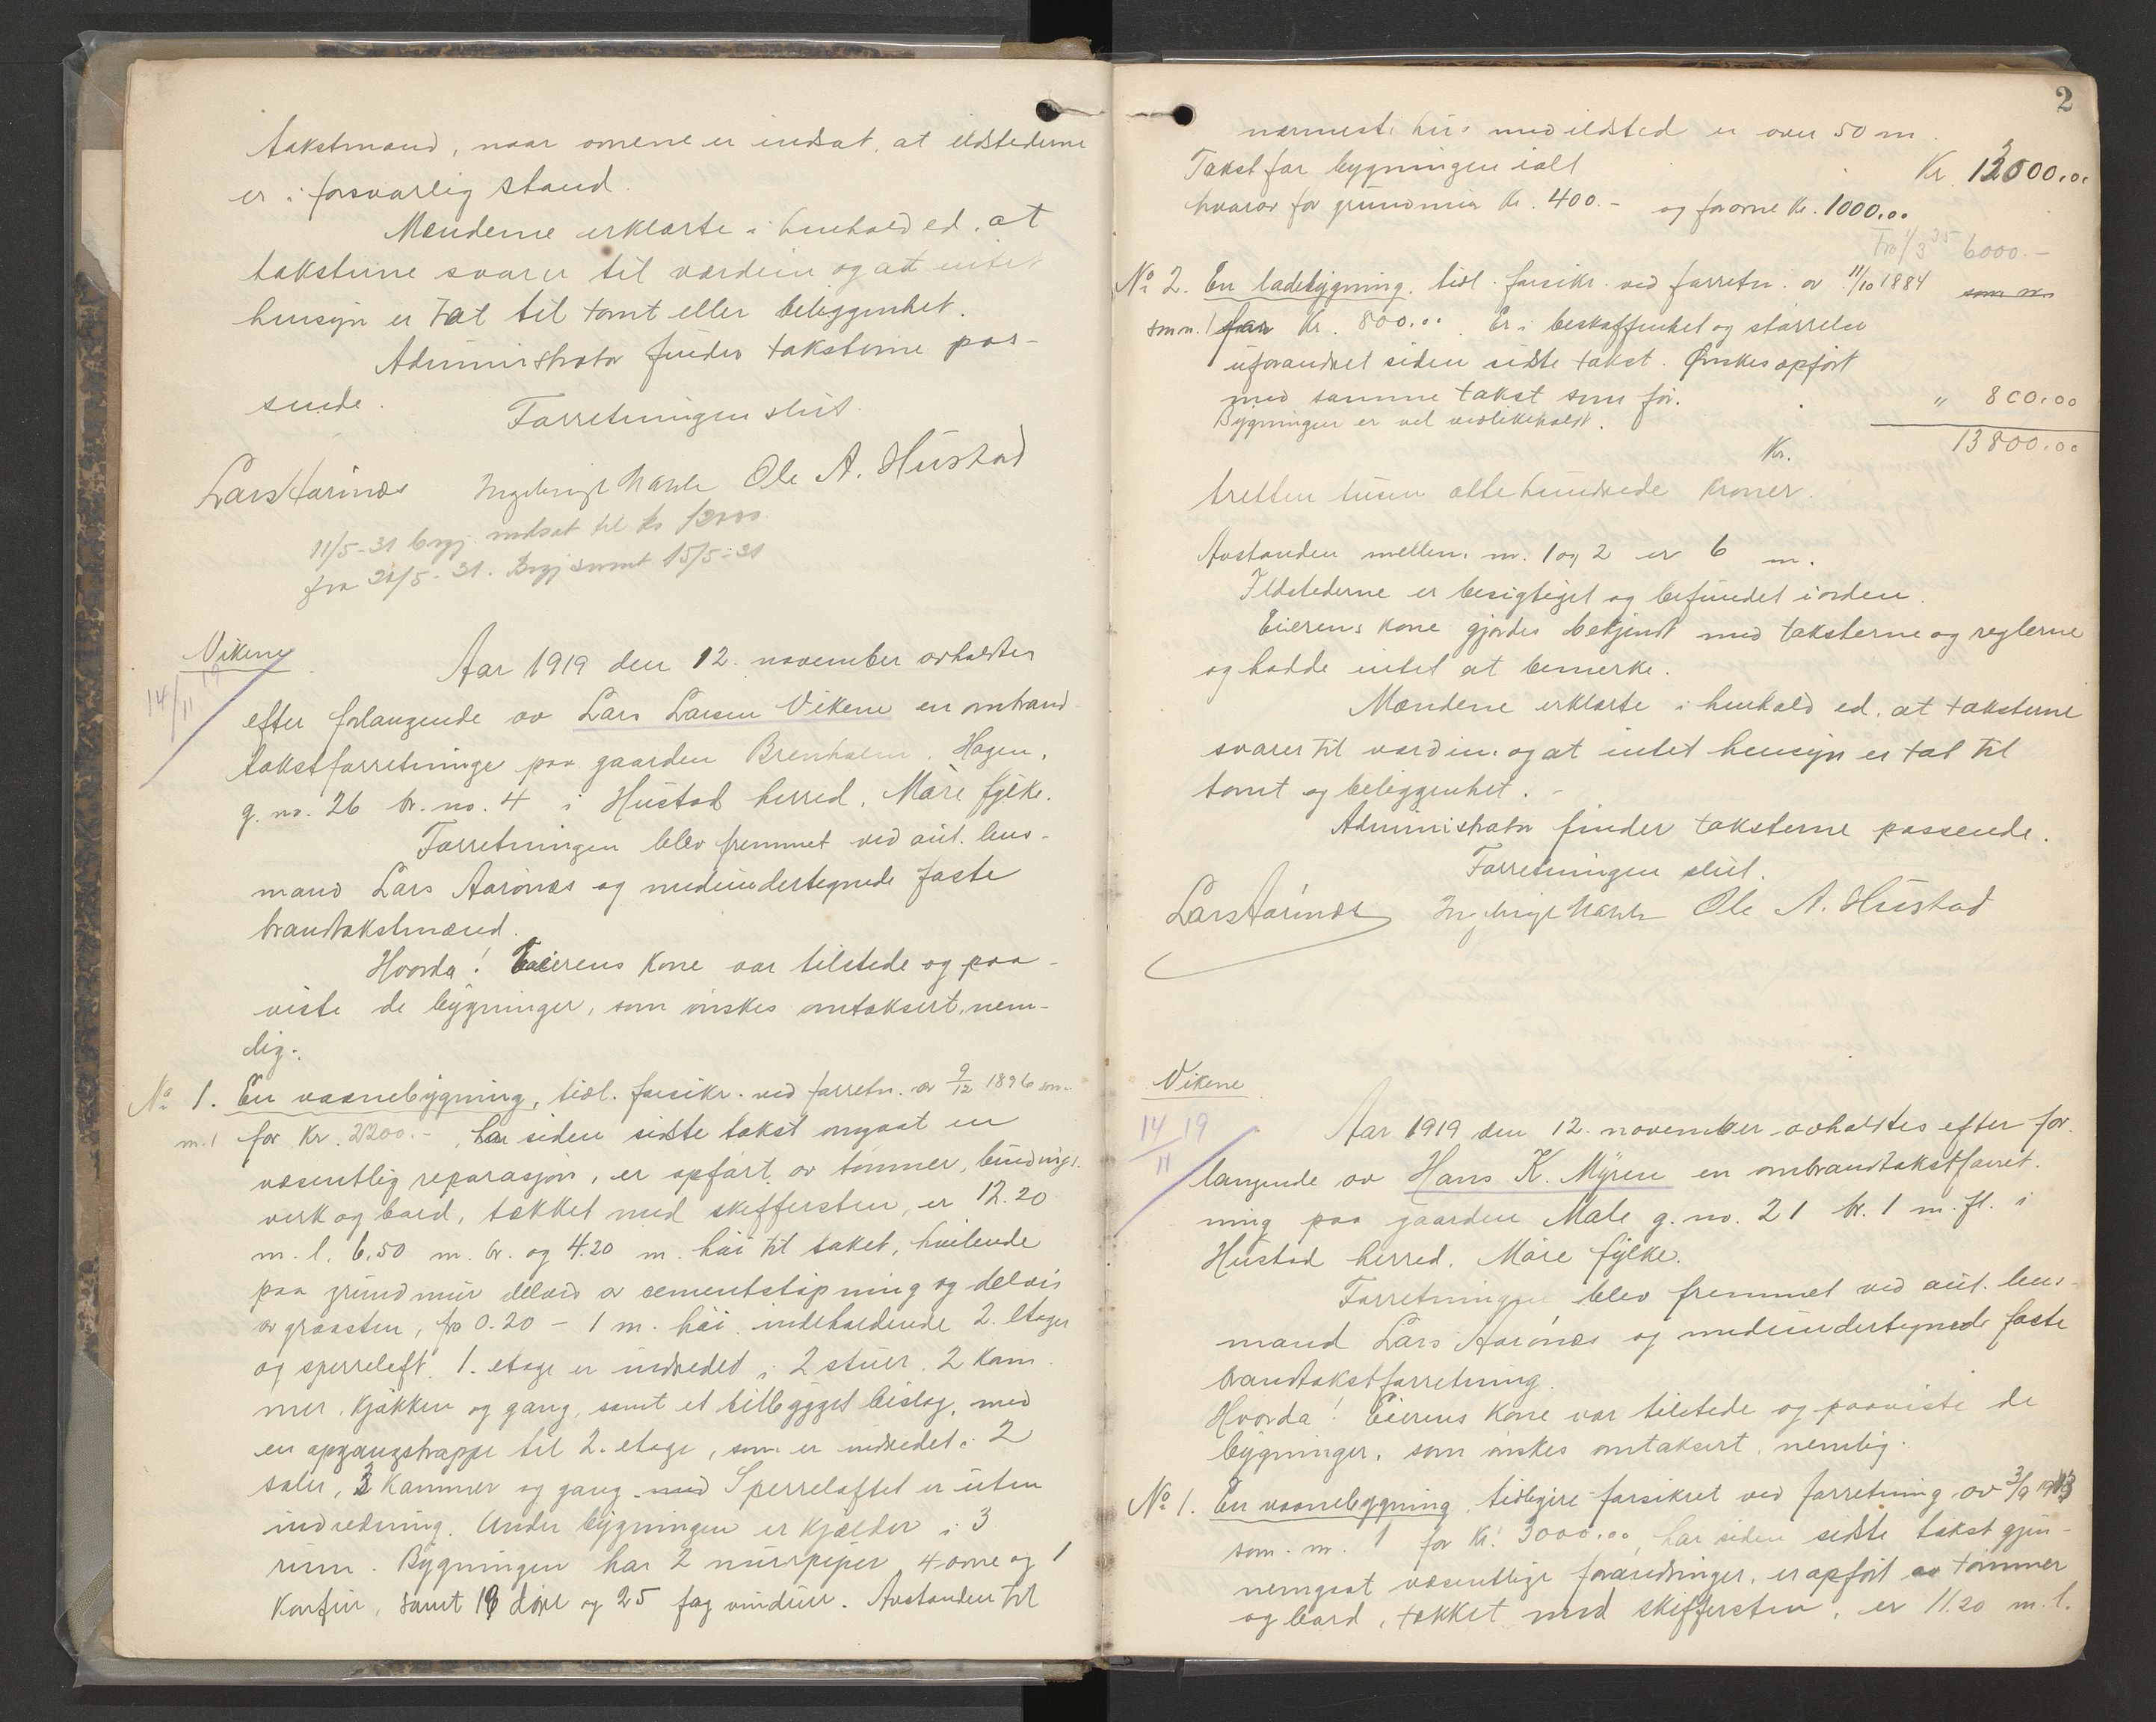 takstmand, naar ovnene er indsat, at ildstederne
er i forsvarlig stand.
Mændene erklærte i henhold ed, at
taksterne svarer til værdien og at intet
hensyn er tat til tomt eller beliggenhet.
Administrator finder taksterne pas-
sende.
Forretningen slut.
Lars Aarønæs Ingebrigt Male Ole A. Hustad
11/5-31 bygj. nedsat til kr 12000
fra 21/5-31. Bygj sendt 15/5-31
Vikene
14/11 19
Aar 1919 den 12. november avholdtes
efter forlangende av Lars Larsen Vikene en ombrand
takstforretninge paa gaarden Brenhalm, Hagen,
g. no. 26 br. no. 4 i Hustad herred, Møre fylke.
Forretningen blev fremmet ved aut. lens-
mand Lars Aarønæs og medundertegnede faste
brandtakstmænd.
Hvorda! Eierens kone var tilstede og paa-
viste de bygninger, som ønskes omtaksert, nem-
lig:
No 1. En vaanebygning, tidl. forsikr. ved forretn. av 9/12 1896 som
nr. 1 for Kr. 2200.-, har siden sidste takst omgaat en
væsentlig reparasjon, er opført av tømmer, bindings.
verk og bord, tækket med skiffersten, er 12.20
m. l. 6.50 m. br. og 4.20 m. høi til taket, hvilende
paa grundmur delvis av cementstøpning og delvis
av graasten, fra 0.20 - 1 m. høi, indeholdende 2. etager
og sperreloft. 1. etage er indredet i 2 stuer, 2 kam
mer, kjøkken og gang, samt et tilbygget bislag, med
en opgangstrappe til 2. etage, som er indredet i 2
saler, 3 kammer og gang. med Sperreloftet er uten
indredning. Under bygningen er kjælder i 3
rum. Bygningen har 2 murpiper, 4 ovne og 1
komfur, samt 16 døre og 25 fag vinduer. Avstanden til
2
nærmeste hus med ildsted er over 50 m.
Takst for bygningen ialt Kr. 13000.00
hvorav for grundmur Kr. 400.- og for ovne Kr. 1000.00
Fra 1/3 35 6000.-
No 2. En ladebygning, tidl. forsikr. ved forretn. av 11/10 1884 som nr.
som nr. 1 for Kr. 800.00. Er i beskaffenhet og størrelse
uforandret siden sidste takst. Ønskes opført
med samme takst som før. " 800.00
Bygningen er vel vedlikeholdt.
Kr. 13800.00
tretten tusen otte hundrede kroner.
Avstanden mellem nr. 1 og 2 er 6 m.
Ildstederne er besigtiget og befundet i orden.
Eierens kone gjordes bekjendt med taksterne og reglerne
og hadde intet at bemerke.
Mændene erklærte i henhold ed, at taksterne
svarer til værdien og at intet hensyn er tat til
tomt og beliggenhet. -
Administrator finder taksterne passende.
Forretningen slut.
Lars Aarønæs Ingebrigt Male Ole A. Hustad
Vikene
14/11 19
Aar 1919 den 12. november avholdtes efter for
langende av Hans K. Myren en ombrandtakstforret.
ning paa gaarden Male g. no. 21 br. 1 m. fl. i
Hustad herred, Møre fylke.
Forretningen blev fremmet ved aut. lens-
mand Lars Aarønæs og medundertegnede faste
brandtakstforretning.
Hvorda! Eierens kone var tilstede og paaviste de
bygninger, som ønskes omtaksert, nemlig:
No 1. En vaanebygning, tidligere forsikret ved forretning av 3/9 1913
som nr. 1 for Kr. 3000.00, har siden sidste takst gjen-
nemgaat væsentlige forandringer, er opført av tømmer
og bord, tækket med skiffersten, er 11.20 m. l.